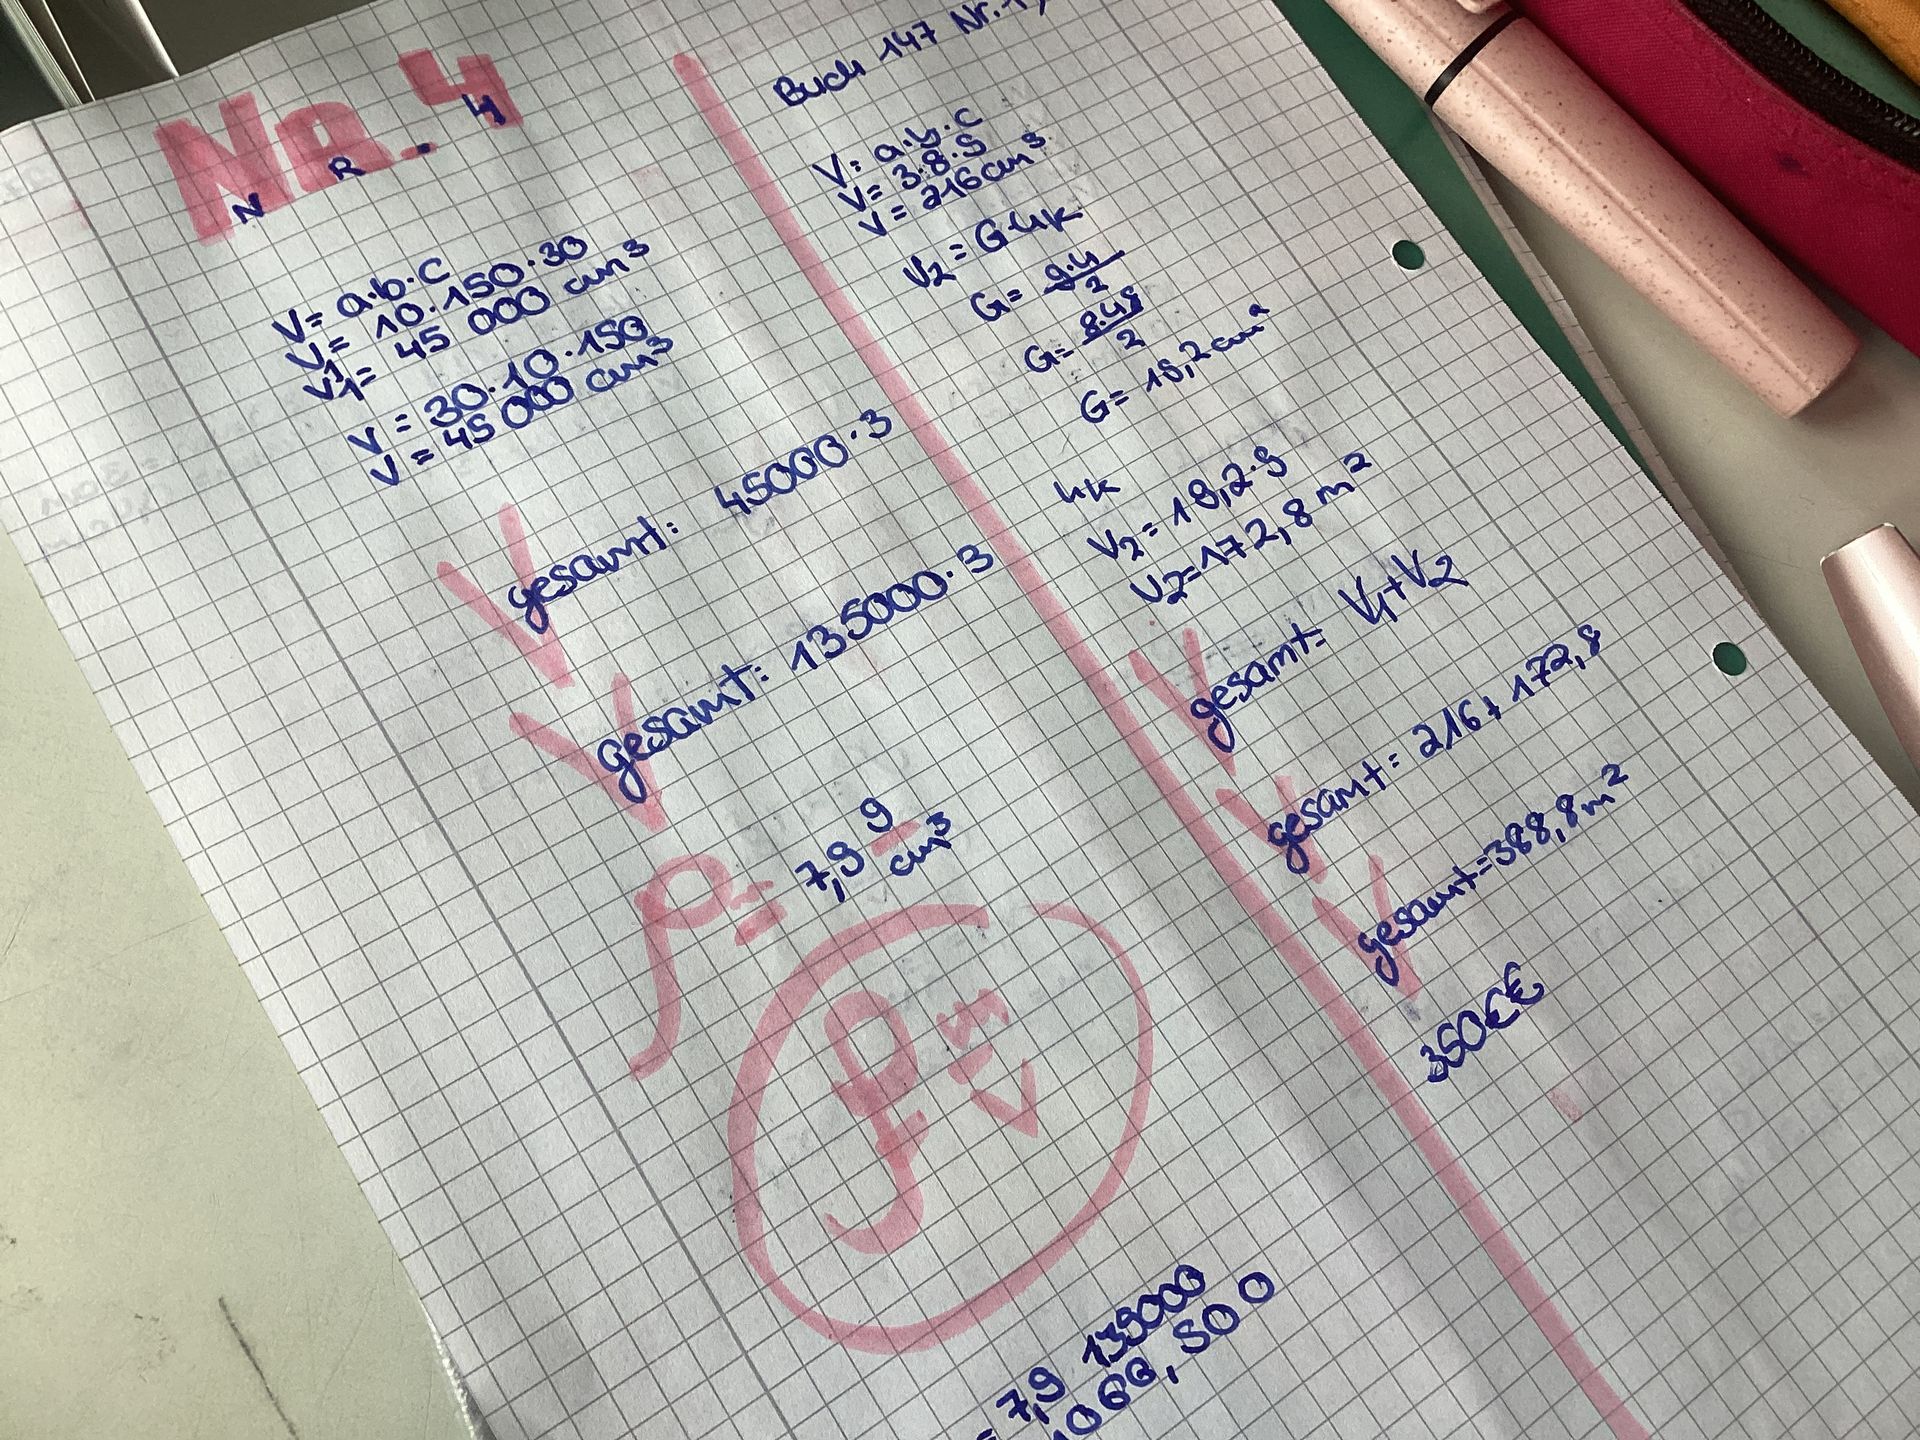 NR. 4
N R . 4
V= a·b·c
V1= 10·150·30
V1= 45 000 cm³
V = 30·10·150
V = 45 000 cm³
V gesamt: 45000·3
V gesamt: 135000·3
ρ= 7,9 g/cm³
ρ = m/V
= 7,9 135000
Buch 147 Nr.
V= a·b·c
V= 3·8·9
V= 216cm³
V2 = G·hk
G= g·h/2
G= 8·4,8/2
G= 19,2cm²
hk
V2= 19,2·9
V2=172,8 m²
V gesamt= V1+V2
V gesamt= 216+172,8
V gesamt=388,8m²
350€€